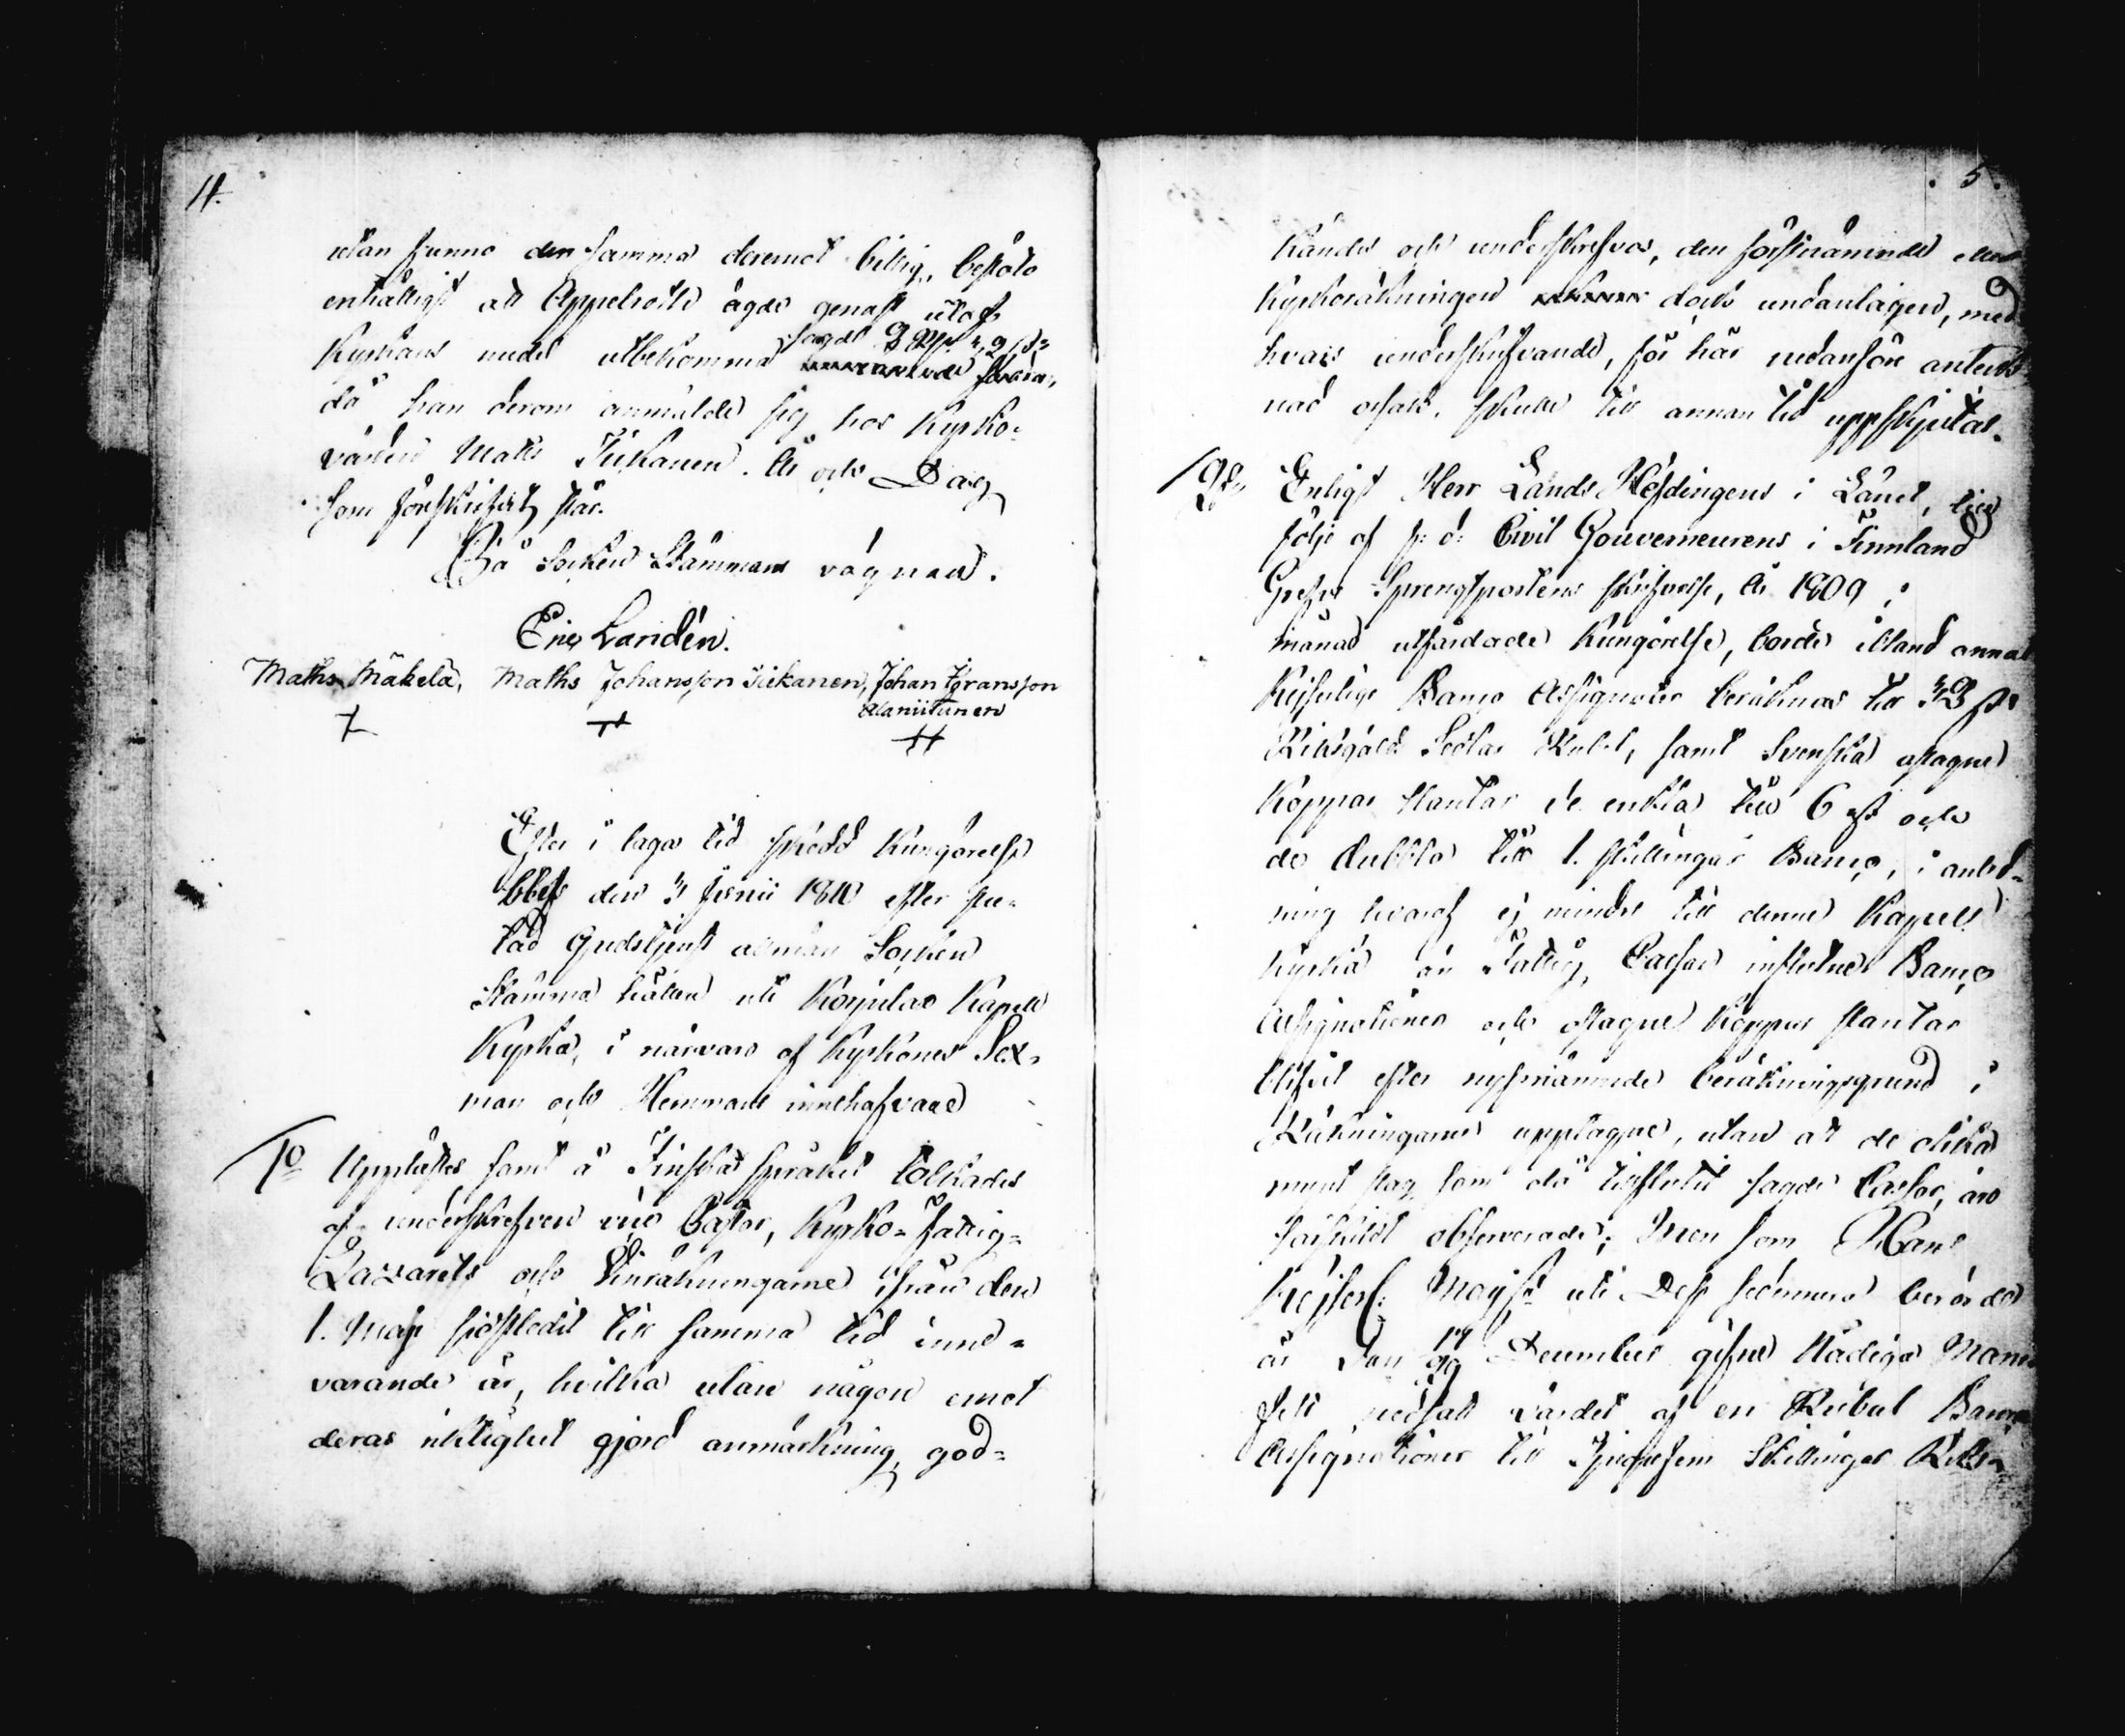 4.
utan funno den samma deremot billig, beslöto
enhälligt att Appelroth ägde genast utaf
Kyrkans medel utbekomma sagde
då han derom anmälde sig hos Kyrko-
värden Matts Tiikanen. År och Dag
som förskrifvit står.
På Socken Stämmans vägnar.
Eric Lanidén.
Maths Mäkelä, Maths Johansson Tiikanen, Johan Göransson
Alaniitunen
Efter i laga tid skedd Kungörelse
blef den 3 Junii 1810 efter slu-
tad Gudstjenst allmän Socken
Stämma hållen uti Korpilax Kapell
Kyrka, i närvaro af Kyrkones Sex-
man och Hemmans innehafvare
1o Upplästes samt å Finska språket tolkades
af underskrefven vice Pastor, Kyrko- Fattig-
Lazaretts och Vinräkningarne ifrån den
1. Maji sistledit till samma tid inne-
varande år, hvilka utan någon emot
deras riktighet gjord anmärkning, god-
5.
kändes och underskrefvos, den förstnämnde eller
Kyrkoräkningen dock undantagen, med
hvars underskrifvande, för här nedanföre anteck-
nad orsak, skulle till annan tid uppskjutas.
2o Enligt Herr Lands Höfdingens i Länet, till
följe af f: d: Civil Gouverneurens i Finnland
Grefve Sprengtportens skrifvelse, År 1809 i
månad utfärdade Kungörelse, borde ibland annat
Kejserlige Banco Assignater beräknas till 32 s
Riksgälds Sedlar Rubel, samt Svenska aftagne
Koppar slantar de enkla till 6 rst och
de dubbla till 1. skillingar Banco, i anled-
ning hvaraf ej mindre till denne Kapell
Kyrka än Fattig Cassan influtne Banco
Assignationer och aftagne Koppar slantar
blifvit efter nyssnämnde beräkningsgrund i
Räkningarne upptagne, utan att de olika
mynt slag som då tillflutit sagde Cassor, äro
särskildt observerade; Men som Hans
Kejserl: Majst uti Dess sednare berörde
år den 17/29 December gifne Nådiga Mani-
fest nedsatt värdet af en Rubel Banco
Assignationer till Tjugufem Skillingar Riks-